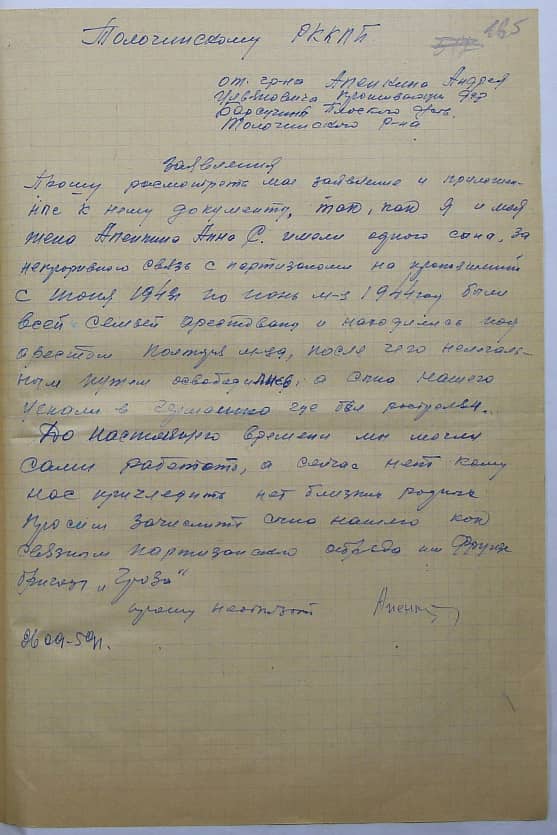 185
Толочинскому РККПБ
от гр-на Апенкина Андрея
Ульяновича проживающ дер
Барсучина Плоского с/сов.
Толочинского р-на
Заявления
Прошу росмотреть мое заявление и приложен-
ные к нему документы, так, как я и моя
жена Апенкина Анна С. имели одного сына, за
непрорывного связь с партизанами на протяжении
с июня 1943г по июнь м-ц 1944 году были
всей семьей арестованы и находились под
арестом полтора м-ца, после чего нелегаль-
ным путем освободились, а сына нашего
угнали в Германию где был ростреляны.
До настоящего времени мы могли
сами работать, а сейчас нет кому
нас присмдрить нет близких родичь
Просим зачислить сына нашего как
связным партизанского отряда им Фрунзе
бригады „Гроза"
прошу неотказать Апенк
26 09-59г.